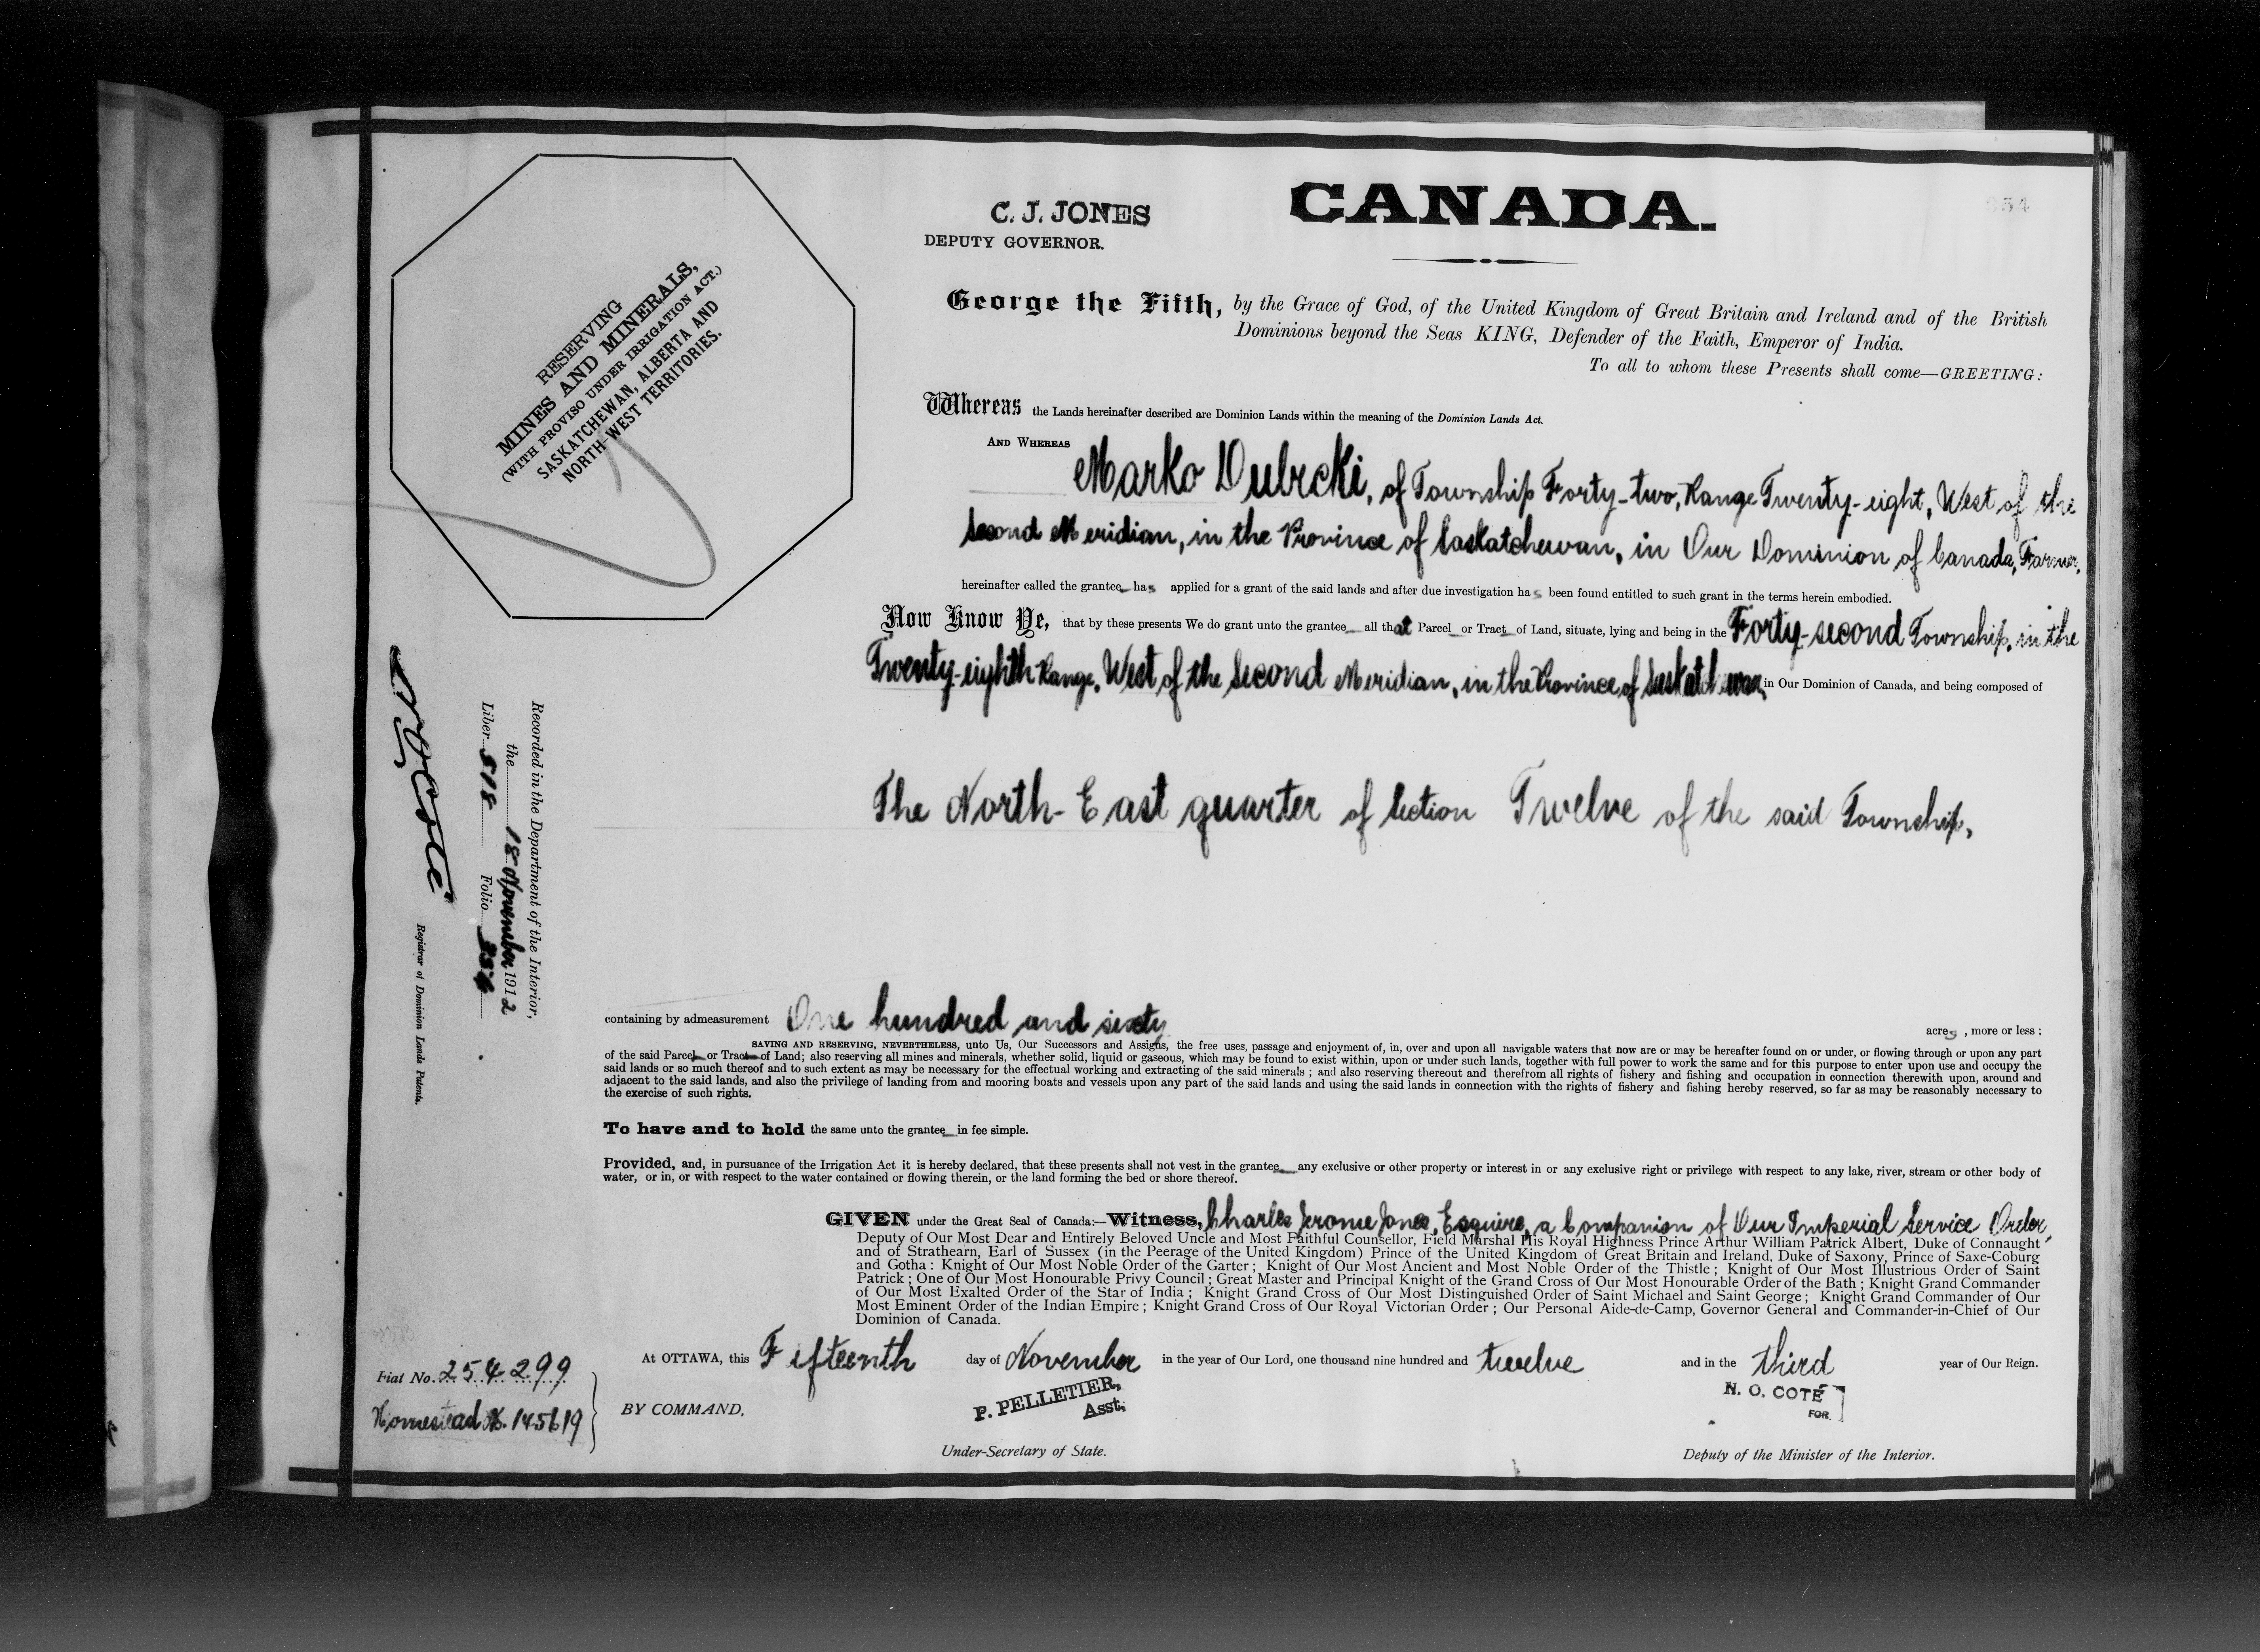 C. J. JONES
DEPUTY GOVERNOR.
CANADA.
354
RESERVING
MINES AND MINERALS,
(WITH PROVISO UNDER IRRIGATION ACT.)
SASKATCHEWAN, ALBERTA AND
NORTH-WEST TERRITORIES.
George the Fifth, by the Grace of God, of the United Kingdom of Great Britain and Ireland and of the British
Dominions beyond the Seas KING, Defender of the Faith, Emperor of India.
To all to whom these Presents shall come—GREETING:
Whereas the Lands hereinafter described are Dominion Lands within the meaning of the Dominion Lands Act.
AND WHEREAS Marko Dubecki, of Township Forty-two, Range Twenty-eight, West of the
Second Meridian, in the Province of Saskatchewan, in Our Dominion of Canada, Farmer,
hereinafter called the grantee has applied for a grant of the said lands and after due investigation has been found entitled to such grant in the terms herein embodied.
Now Know Ye, that by these presents We do grant unto the grantee all that Parcel or Tract of Land, situate, lying and being in the Forty-second Township, in the
Twenty-eighth Range, West of the Second Meridian, in the Province of Saskatchewan, in Our Dominion of Canada, and being composed of
The North-East quarter of Section Twelve of the said Township,
containing by admeasurement One hundred and sixty acres, more or less;
SAVING AND RESERVING, NEVERTHELESS, unto Us, Our Successors and Assigns, the free uses, passage and enjoyment of, in, over and upon all navigable waters that now are or may be hereafter found on or under, or flowing through or upon any part
of the said Parcel or Tract of Land; also reserving all mines and minerals, whether solid, liquid or gaseous, which may be found to exist within, upon or under such lands, together with full power to work the same and for this purpose to enter upon use and occupy the
said lands or so much thereof and to such extent as may be necessary for the effectual working and extracting of the said minerals; and also reserving thereout and therefrom all rights of fishery and fishing and occupation in connection therewith upon, around and
adjacent to the said lands, and also the privilege of landing from and mooring boats and vessels upon any part of the said lands and using the said lands in connection with the rights of fishery and fishing hereby reserved, so far as may be reasonably necessary to
the exercise of such rights.
To have and to hold the same unto the grantee in fee simple.
Provided, and, in pursuance of the Irrigation Act it is hereby declared, that these presents shall not vest in the grantee any exclusive or other property or interest in or any exclusive right or privilege with respect to any lake, river, stream or other body of
water, or in, or with respect to the water contained or flowing therein, or the land forming the bed or shore thereof.
GIVEN under the Great Seal of Canada:—Witness, Charles Jerome Jones, Esquire, a Companion of Our Imperial Service Order,
Deputy of Our Most Dear and Entirely Beloved Uncle and Most Faithful Counsellor, Field Marshal His Royal Highness Prince Arthur William Patrick Albert, Duke of Connaught
and of Strathearn, Earl of Sussex (in the Peerage of the United Kingdom) Prince of the United Kingdom of Great Britain and Ireland, Duke of Saxony, Prince of Saxe-Coburg
and Gotha: Knight of Our Most Noble Order of the Garter; Knight of Our Most Ancient and Most Noble Order of the Thistle; Knight of Our Most Illustrious Order of Saint
Patrick; One of Our Most Honourable Privy Council; Great Master and Principal Knight of the Grand Cross of Our Most Honourable Order of the Bath; Knight Grand Commander
of Our Most Exalted Order of the Star of India; Knight Grand Cross of Our Most Distinguished Order of Saint Michael and Saint George; Knight Grand Commander of Our
Most Eminent Order of the Indian Empire; Knight Grand Cross of Our Royal Victorian Order; Our Personal Aide-de-Camp, Governor General and Commander-in-Chief of Our
Dominion of Canada.
At OTTAWA, this Fifteenth day of November in the year of Our Lord, one thousand nine hundred and twelve and in the third year of Our Reign.
BY COMMAND,
P. PELLETIER,
Asst.
Under-Secretary of State.
N. O. COTÉ
FOR
Deputy of the Minister of the Interior.
Fiat No. 254299
Homestead No. 145619
Recorded in the Department of the Interior,
the 18 November 1912
Liber 518 Folio 354
N. O. Coté
Registrar of Dominion Lands Patents.